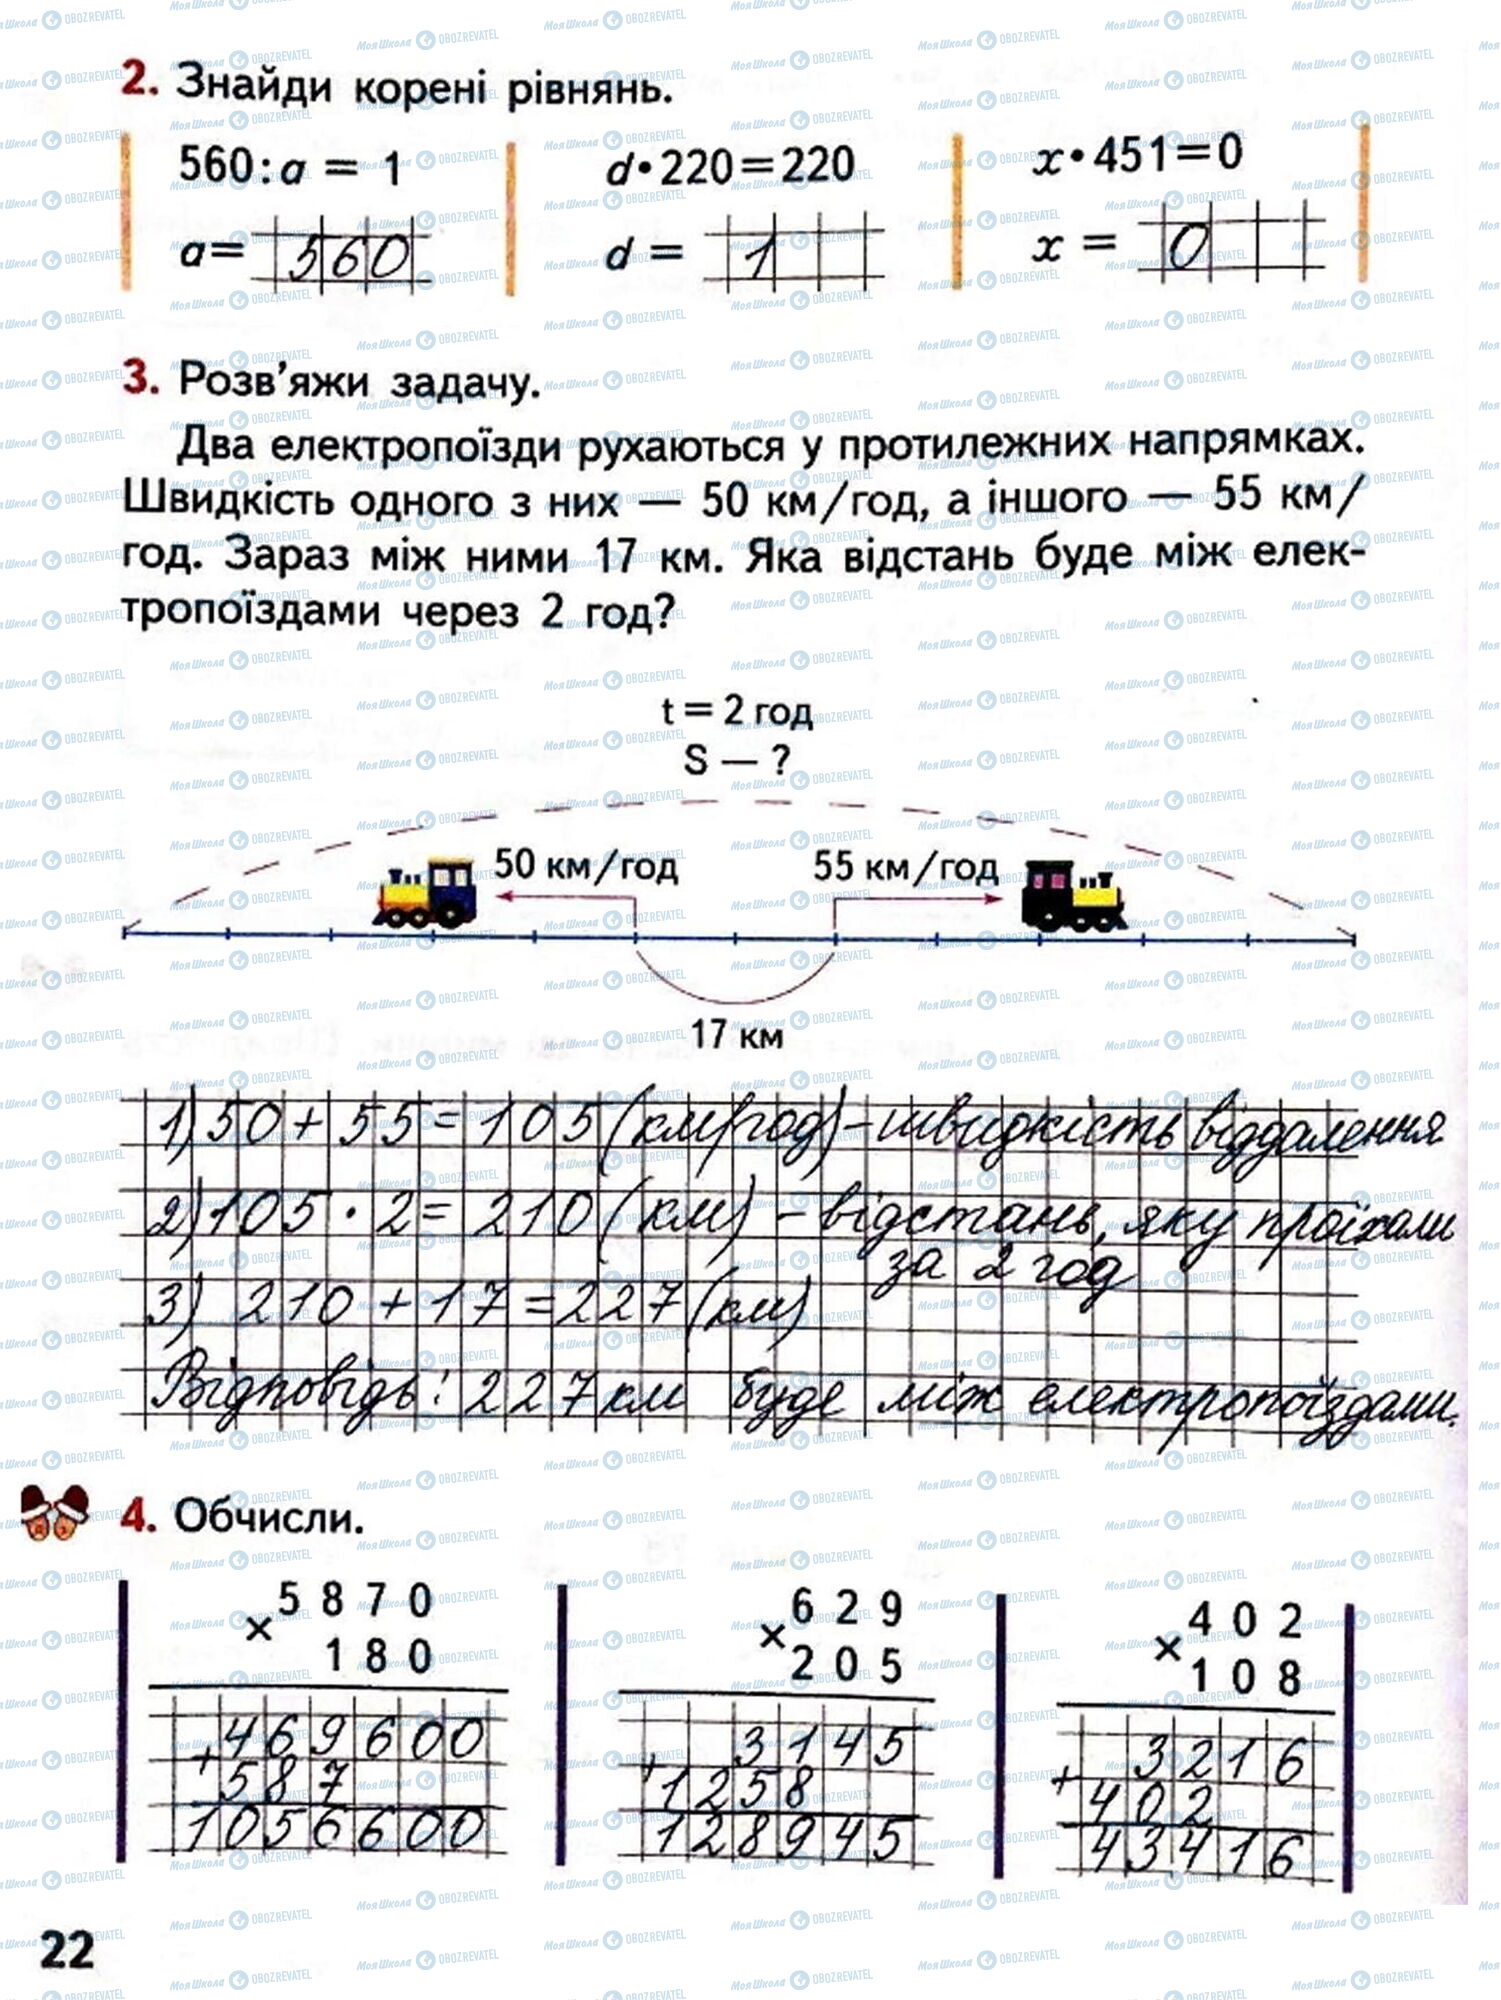 2. Знайди корені рівнянь.
560:a = 1
d•220=220
x•451=0
a= 560
d = 1
x = 0
3. Розв’яжи задачу.
Два електропоїзди рухаються у протилежних напрямках.
Швидкість одного з них — 50 км/год, а іншого — 55 км/
год. Зараз між ними 17 км. Яка відстань буде між елек-
тропоїздами через 2 год?
t = 2 год
S — ?
50 км/год
55 км/год
17 км
1) 50 + 55 = 105 (км/год) – швидкість віддалення
2) 105 · 2 = 210 (км) – відстань, яку проїхали
за 2 год
3) 210 + 17 = 227 (км)
Відповідь: 227 км буде між електропоїздами.
4. Обчисли.
5870
× 180
469600
+ 587
1056600
629
× 205
3145
+ 1258
128945
402
× 108
3216
+ 402
43416
22
МояШкола OBOZREVATEL